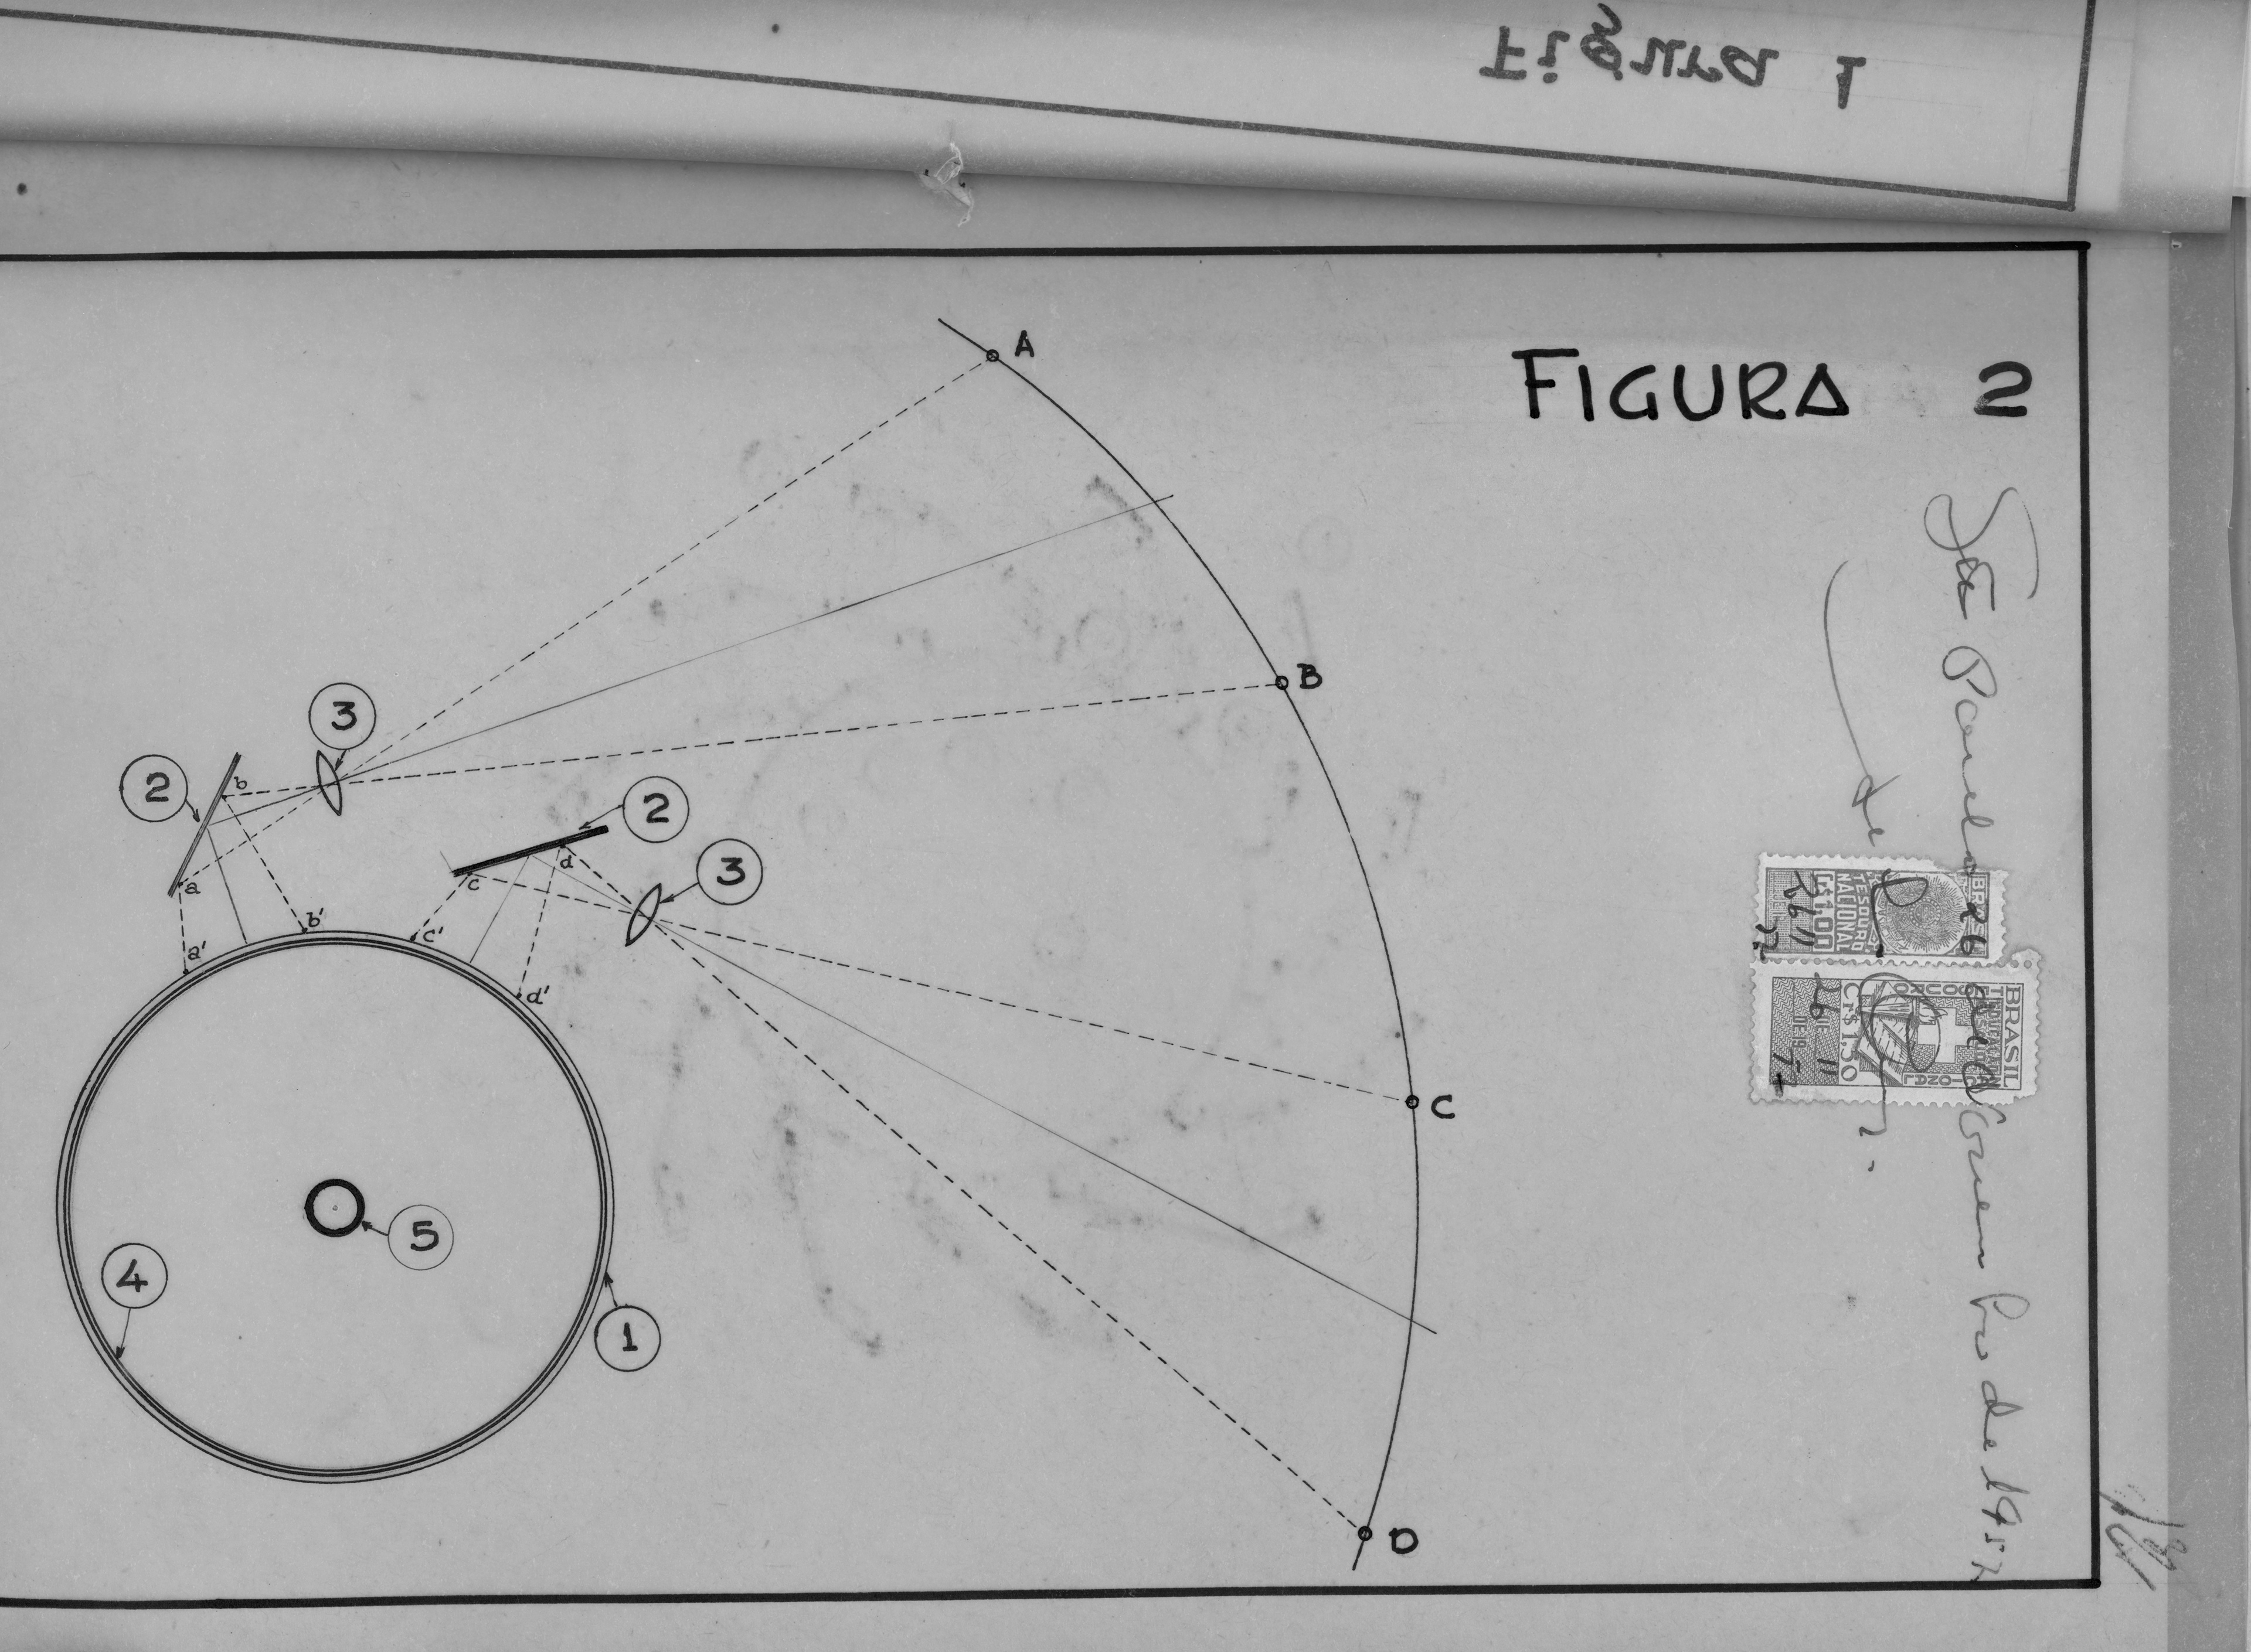 Figura 1
FIGURA 2
A
B
3
2
b
a
2
d
c
3
b'
a'
c'
d'
C
5
4
1
D
São Paulo 26 de Novembro de 1952
BRASIL
TESOURO
NACIONAL
Cr$1,00
26 11
52
BRASIL
TESOURO
NACIONAL
Cr$1,50
DE 19
26 11
52